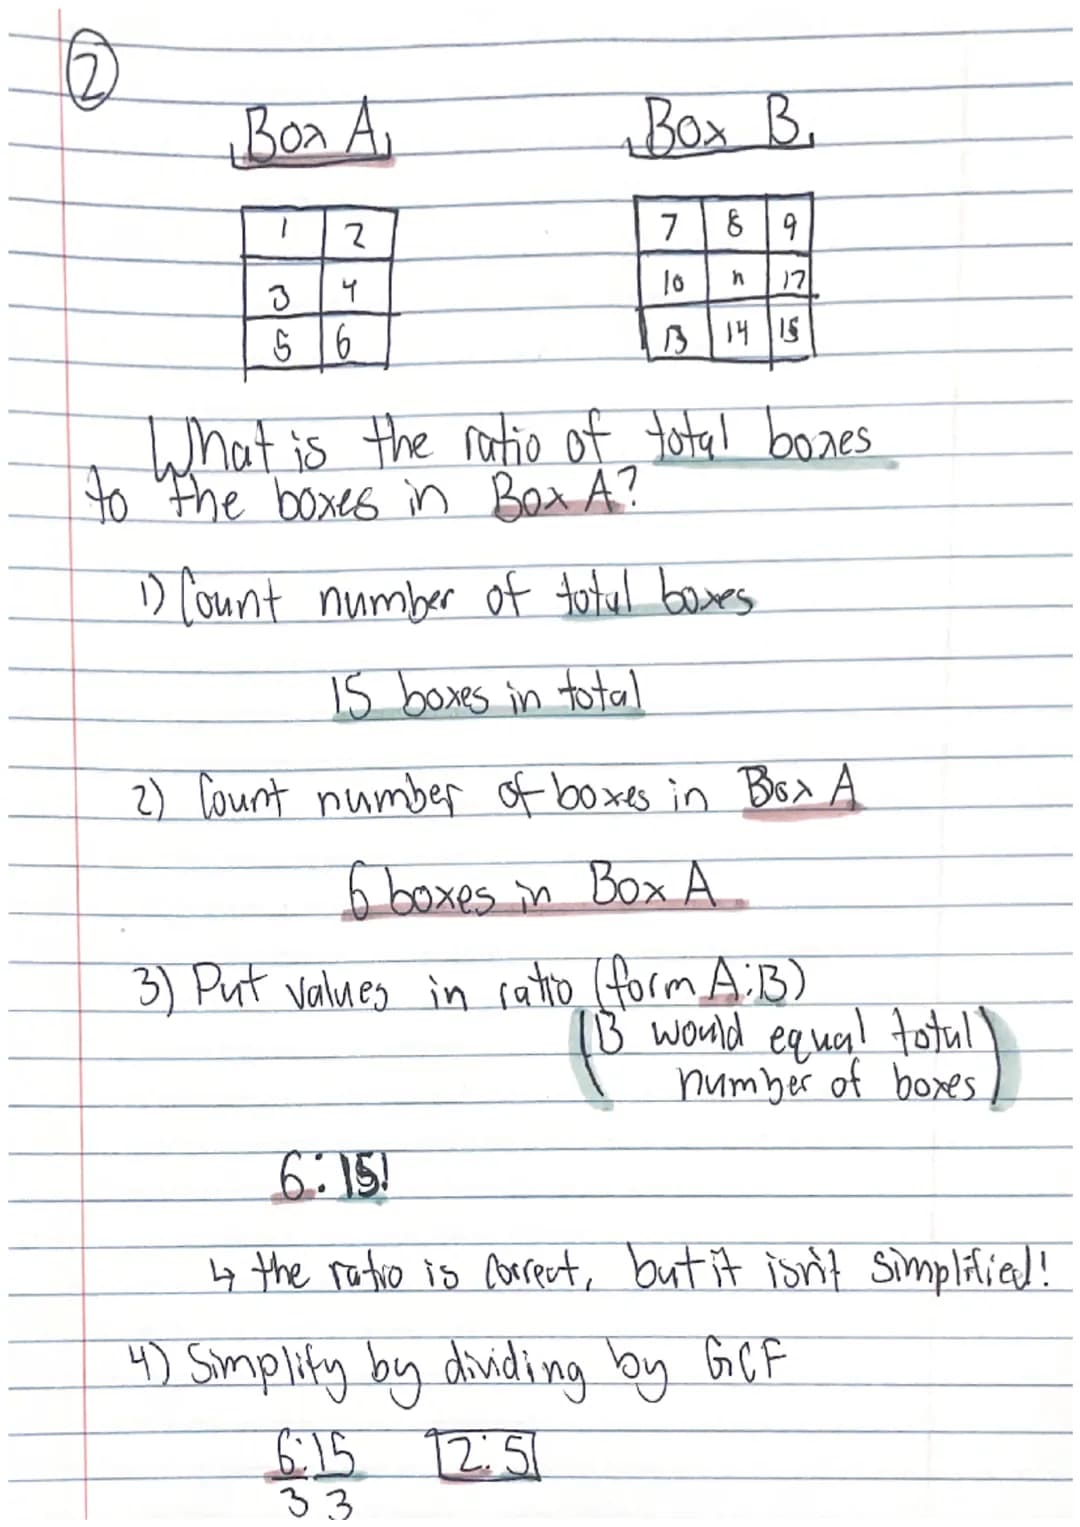 2
Box A
Box B
1 2
3 4
5 6
7 8 9
10 11 12
13 14 15
What is the ratio of total boxes
to the boxes in Box A?
1) Count number of total boxes
15 boxes in total
2) Count number of boxes in Box A
6 boxes in Box A
3) Put values in ratio (form A:B)
(B would equal total
number of boxes)
6:15!
↳ the ratio is correct, but it isn't simplified!
4) Simplify by dividing by GCF
6:15 2:5
3 3